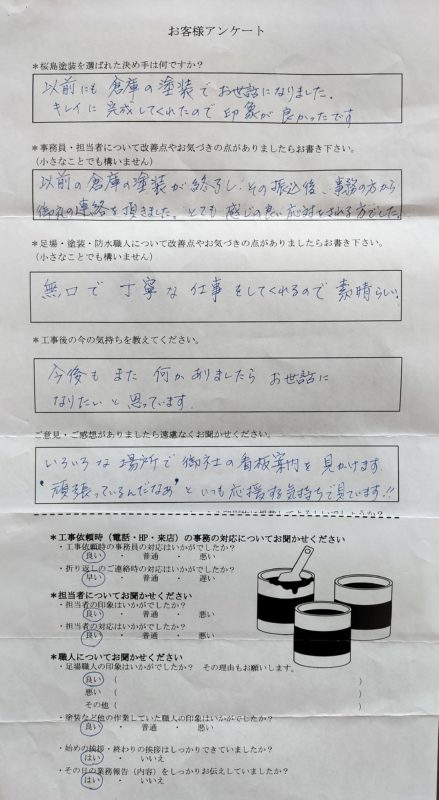 お客様アンケート
＊桜島塗装を選ばれた決め手は何ですか？
以前にも倉庫の塗装でお世話になりました。
キレイに完成してくれたので印象が良かったです
＊事務員・担当者について改善点やお気づきの点がありましたらお書き下さい。
（小さなことでも構いません）
以前の倉庫の塗装が終了し、その振込後、事務の方から
御礼の連絡を頂きました。とても感じの良い応対をされる方でした。
＊足場・塗装・防水職人について改善点やお気づきの点がありましたらお書き下さい。
（小さなことでも構いません）
無口で丁寧な仕事をしてくれるので素晴らしい！
＊工事後の今の気持ちを教えてください。
今後もまた何かありましたらお世話に
なりたいと思っています。
ご意見・ご感想がありましたら遠慮なくお聞かせください。
いろいろな場所で御社の看板案内を見かけます。
"頑張っているんだなあ"といつも応援する気持ちで見ています!!
＊工事依頼時（電話・HP・来店）の事務の対応についてお聞かせください
・工事依頼時の事務員の対応はいかがでしたか？
良い ・ 普通 ・ 悪い
・折り返しのご連絡時の対応はいかがでしたか？
早い ・ 普通 ・ 遅い
＊担当者についてお聞かせください
・担当者の印象はいかがでしたか？
良い ・ 普通 ・ 悪い
・担当者の対応はいかがでしたか？
良い ・ 普通 ・ 悪い
＊職人についてお聞かせください
・足場職人の印象はいかがでしたか？ その理由もお願いします。
良い （ ）
悪い （ ）
その他（ ）
・塗装など他の作業していた職人の印象はいかがでしたか？
良い ・ 普通 ・ 悪い
・始めの挨拶・終わりの挨拶はしっかりできていましたか？
はい ・ いいえ
・その日の業務報告（内容）をしっかりお伝えしていましたか？
はい ・ いいえ